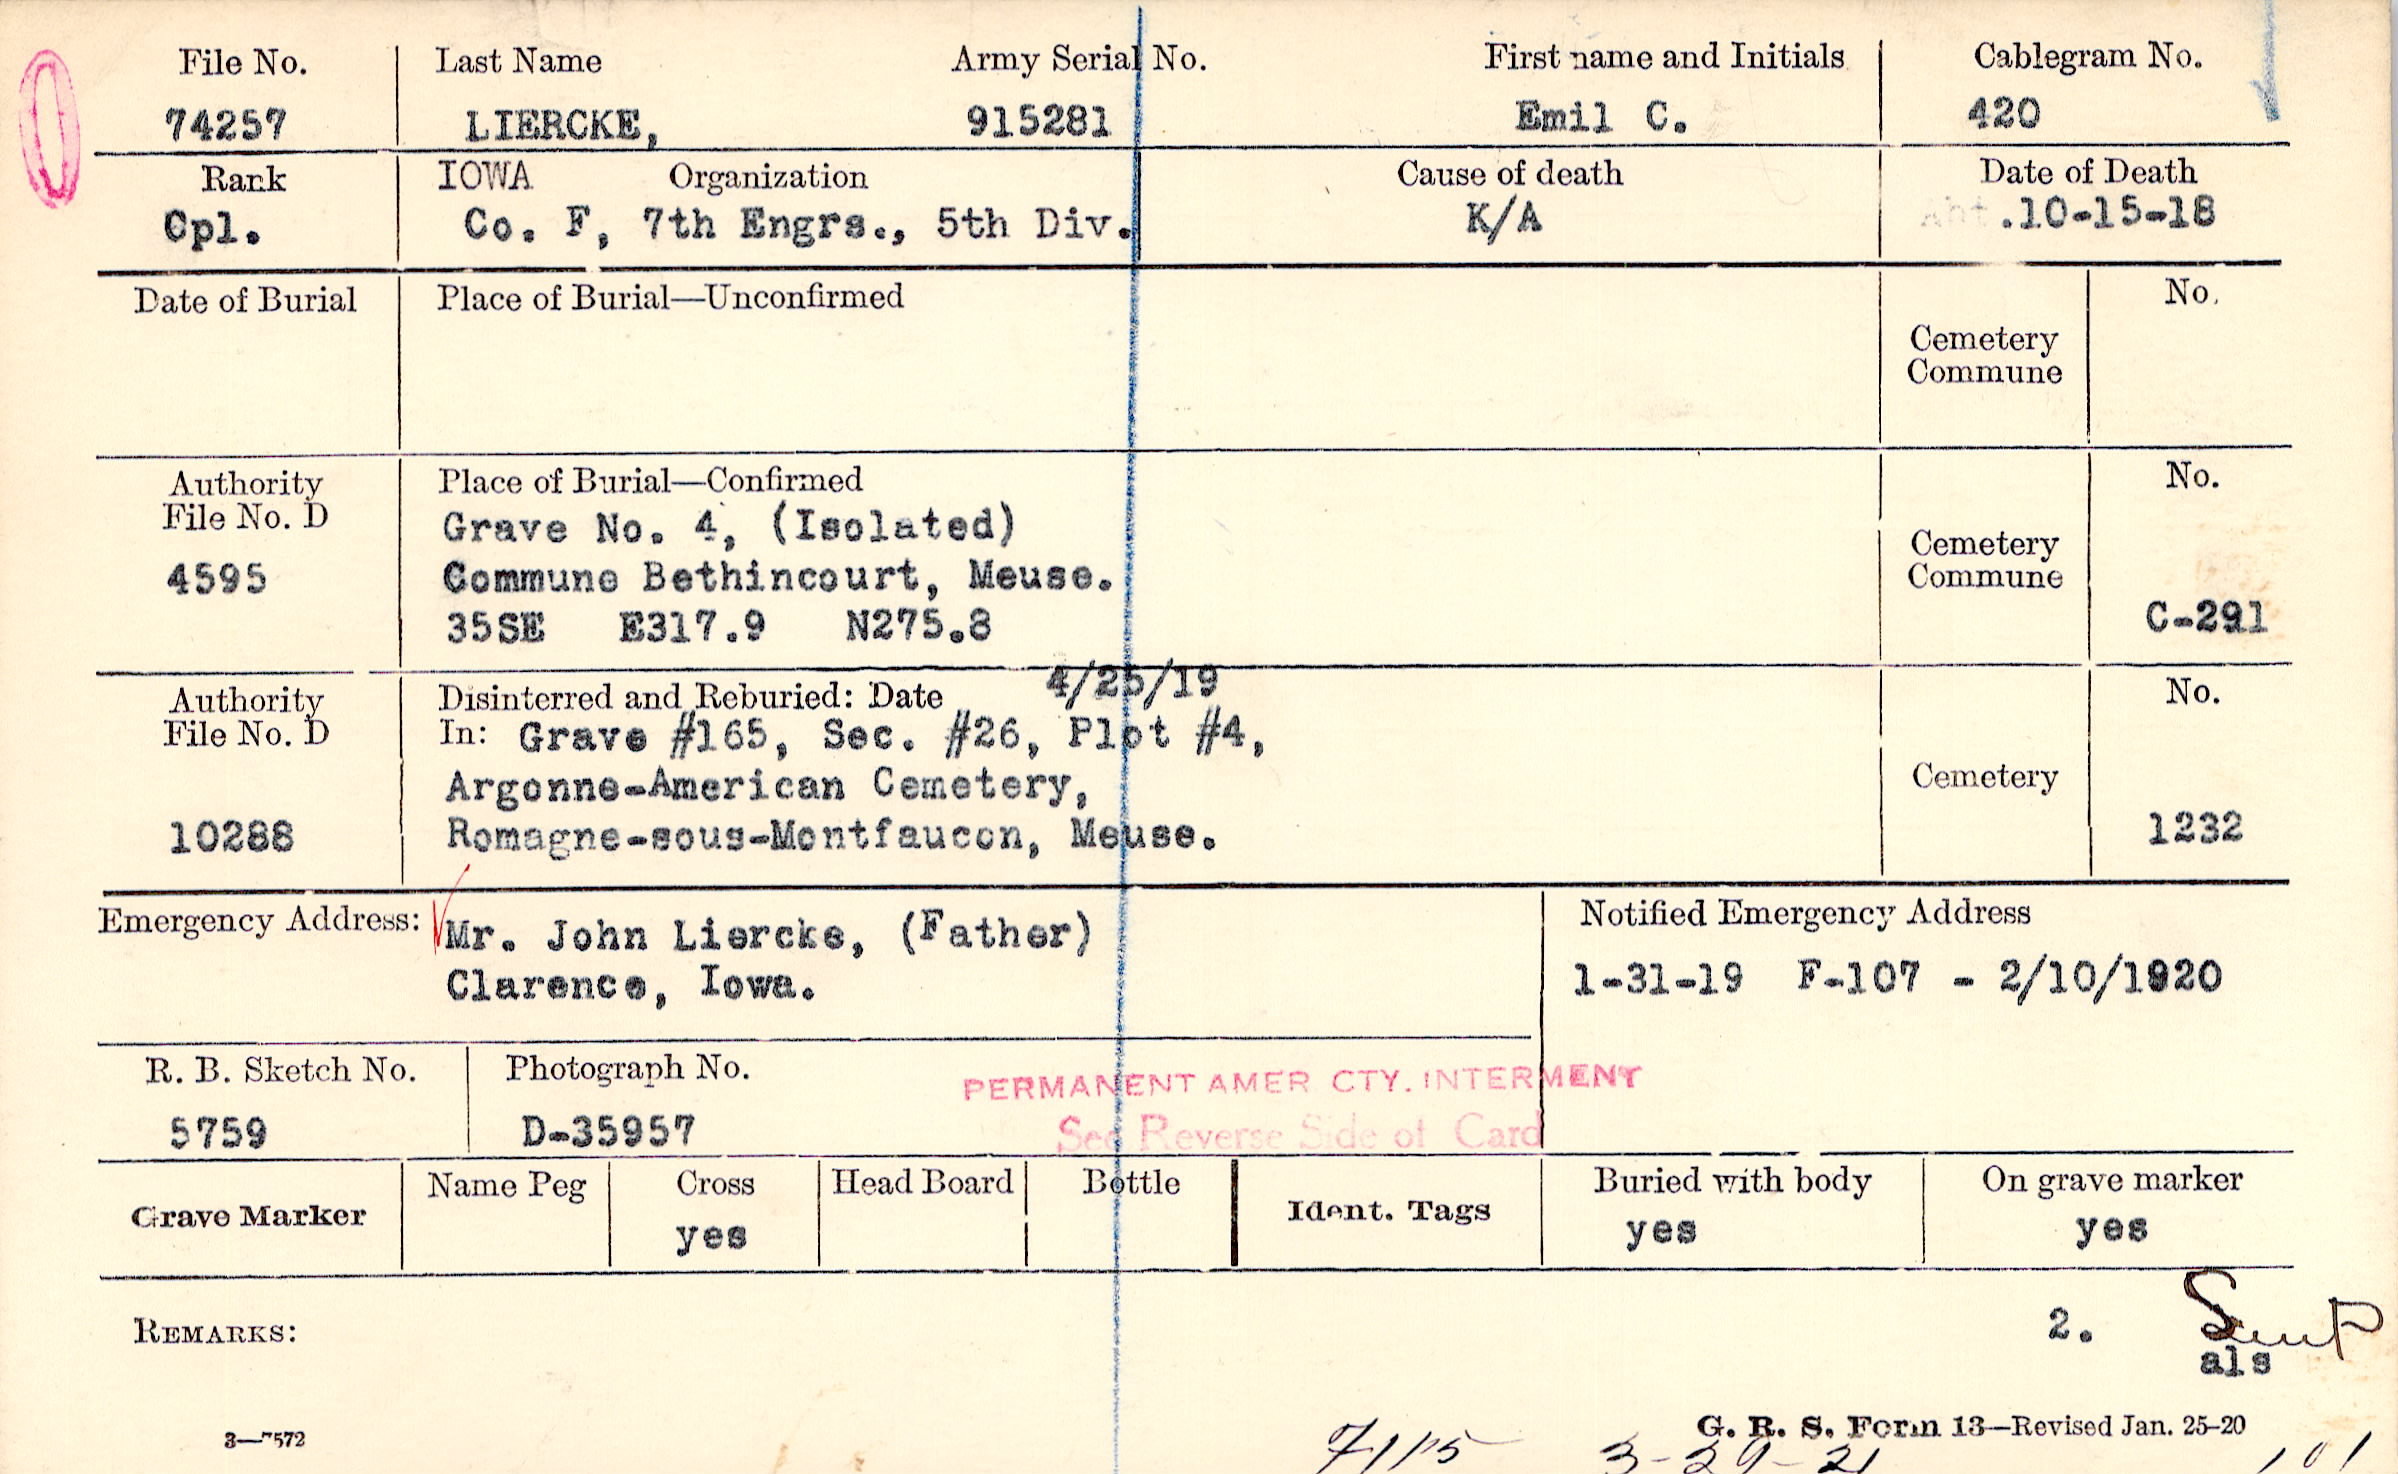 File No. Last Name Army Serial No. First name and Initials Cablegram No.
74257 LIERCKE, 915281 Emil C. 420
Rank IOWA Organization Cause of death Date of Death
Cpl. Co. F, 7th Engrs., 5th Div. K/A Abt.10-15-18
Date of Burial Place of Burial—Unconfirmed No.
Cemetery
Commune
Authority Place of Burial—Confirmed No.
File No. D Grave No. 4, (Isolated)
Cemetery
4595 Commune Bethincourt, Meuse. Commune
35SE E317.9 N275.8 C-291
Authority Disinterred and Reburied: Date 4/25/19 No.
File No. D In: Grave #165, Sec. #26, Plot #4,
Argonne-American Cemetery, Cemetery
10288 Romagne-sous-Montfaucon, Meuse. 1232
Emergency Address: Mr. John Liercke, (Father) Notified Emergency Address
Clarence, Iowa. 1-31-19 F-107 - 2/10/1920
R. B. Sketch No. Photograph No. PERMANENT AMER CTY. INTERMENT
5759 D-35957 See Reverse Side of Card
Grave Marker Name Peg Cross Head Board Bottle Ident. Tags Buried with body On grave marker
yes yes yes
REMARKS: 2.
als
3—7572 G. R. S. Form 13—Revised Jan. 25-20
3-29-21 101